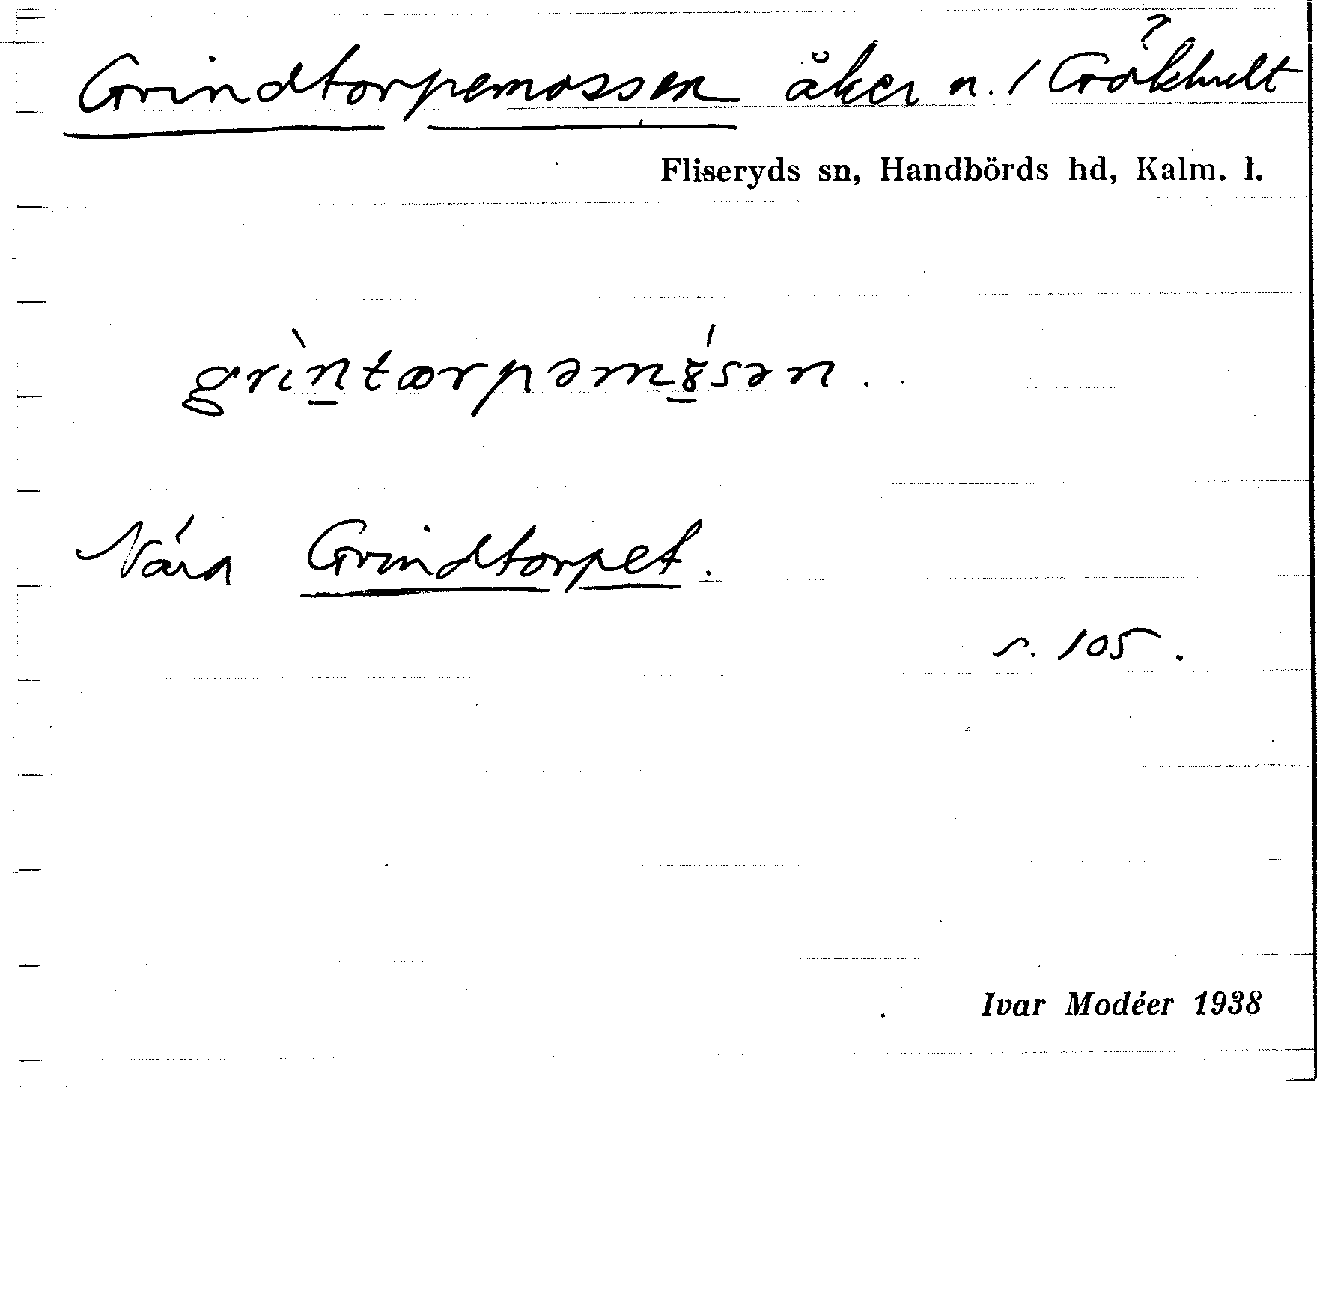 Grindtorpemossen åker n. / Gökhult
Fliseryds sn, Handbörds hd, Kalm. l.
grìntærpəmȣ́sən.
Nära Grindtorpet.
s. 105.
Ivar Modéer 1938